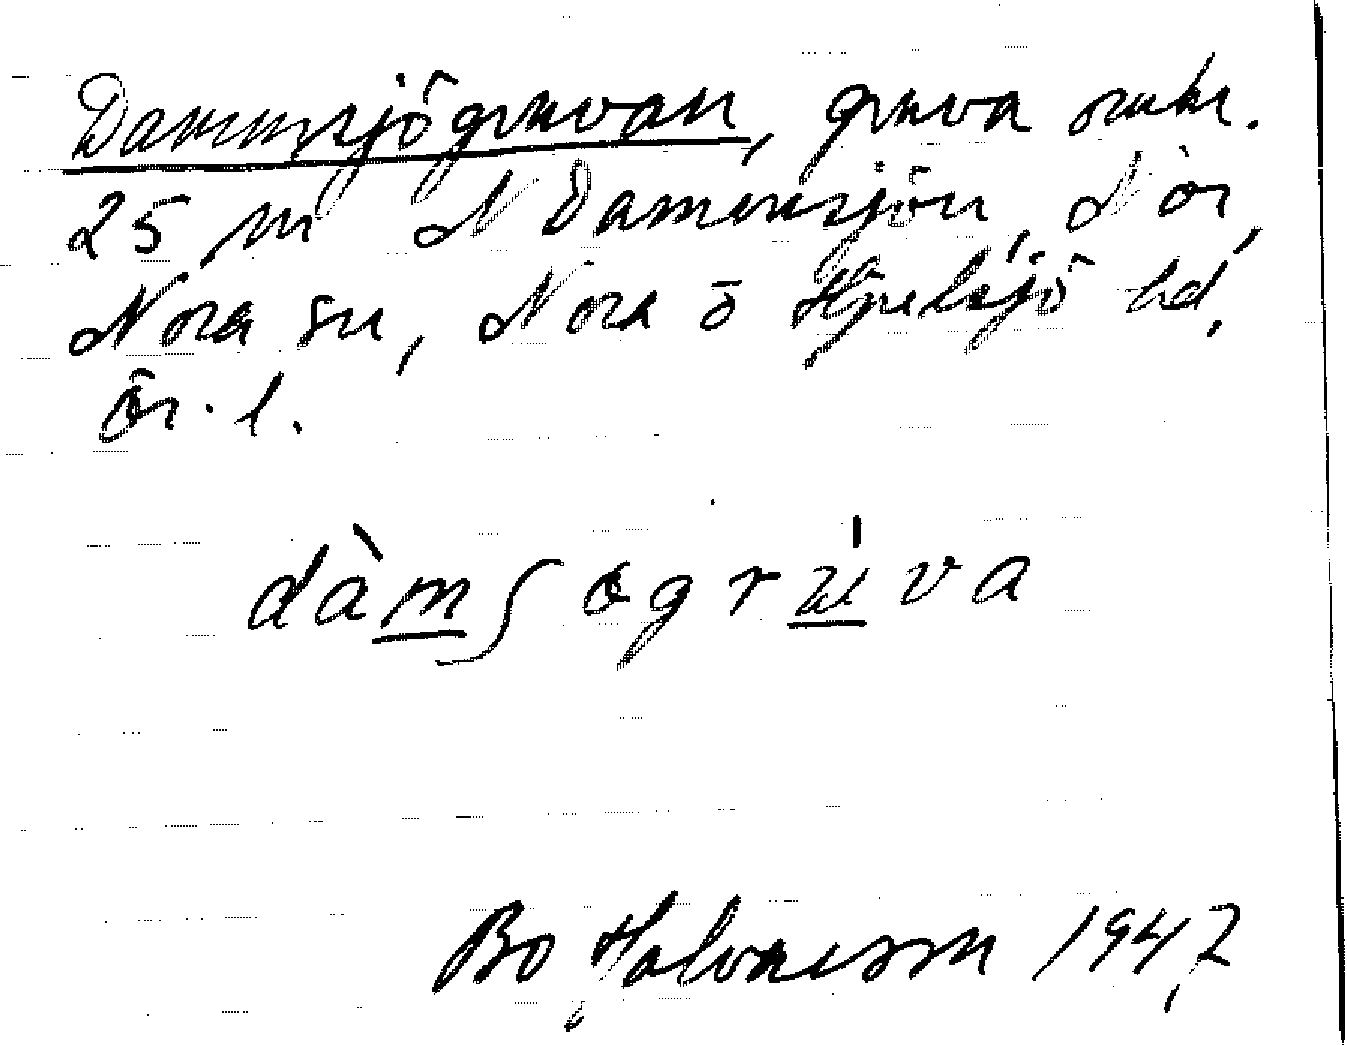 Dammsjögruvan, gruva omkr.
25 m N Dammsjön, N ör,
Nora sn, Nora o Hjulsjö hd,
Ör. l.
dàmʃogrúva
Bo Halvarsson 1947